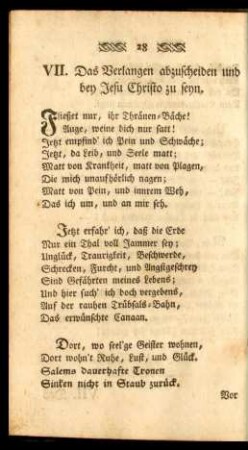 28
VII. Das Verlangen abzuscheiden und
bey Jesu Christo zu seyn.
Fließet nur, ihr Thränen-Bäche!
Auge, weine dich nur satt!
Jetzt empfind' ich Pein und Schwäche;
Jetzt, da Leib, und Seele matt;
Matt von Krankheit, matt von Plagen,
Die mich unaufhörlich nagen;
Matt von Pein, und innrem Weh,
Das ich um, und an mir seh.
Jetzt erfahr' ich, daß die Erde
Nur ein Thal voll Jammer sey;
Unglück, Traurigkeit, Beschwerde,
Schrecken, Furcht, und Angstgeschrey
Sind Gefährten meines Lebens;
Und hier such' ich doch vergebens,
Auf der rauhen Trübsals-Bahn,
Das erwünschte Canaan.
Dort, wo seel'ge Geister wohnen,
Dort wohn't Ruhe, Lust, und Glück.
Salems dauerhafte Tronen
Sinken nicht in Staub zurück.
Vor